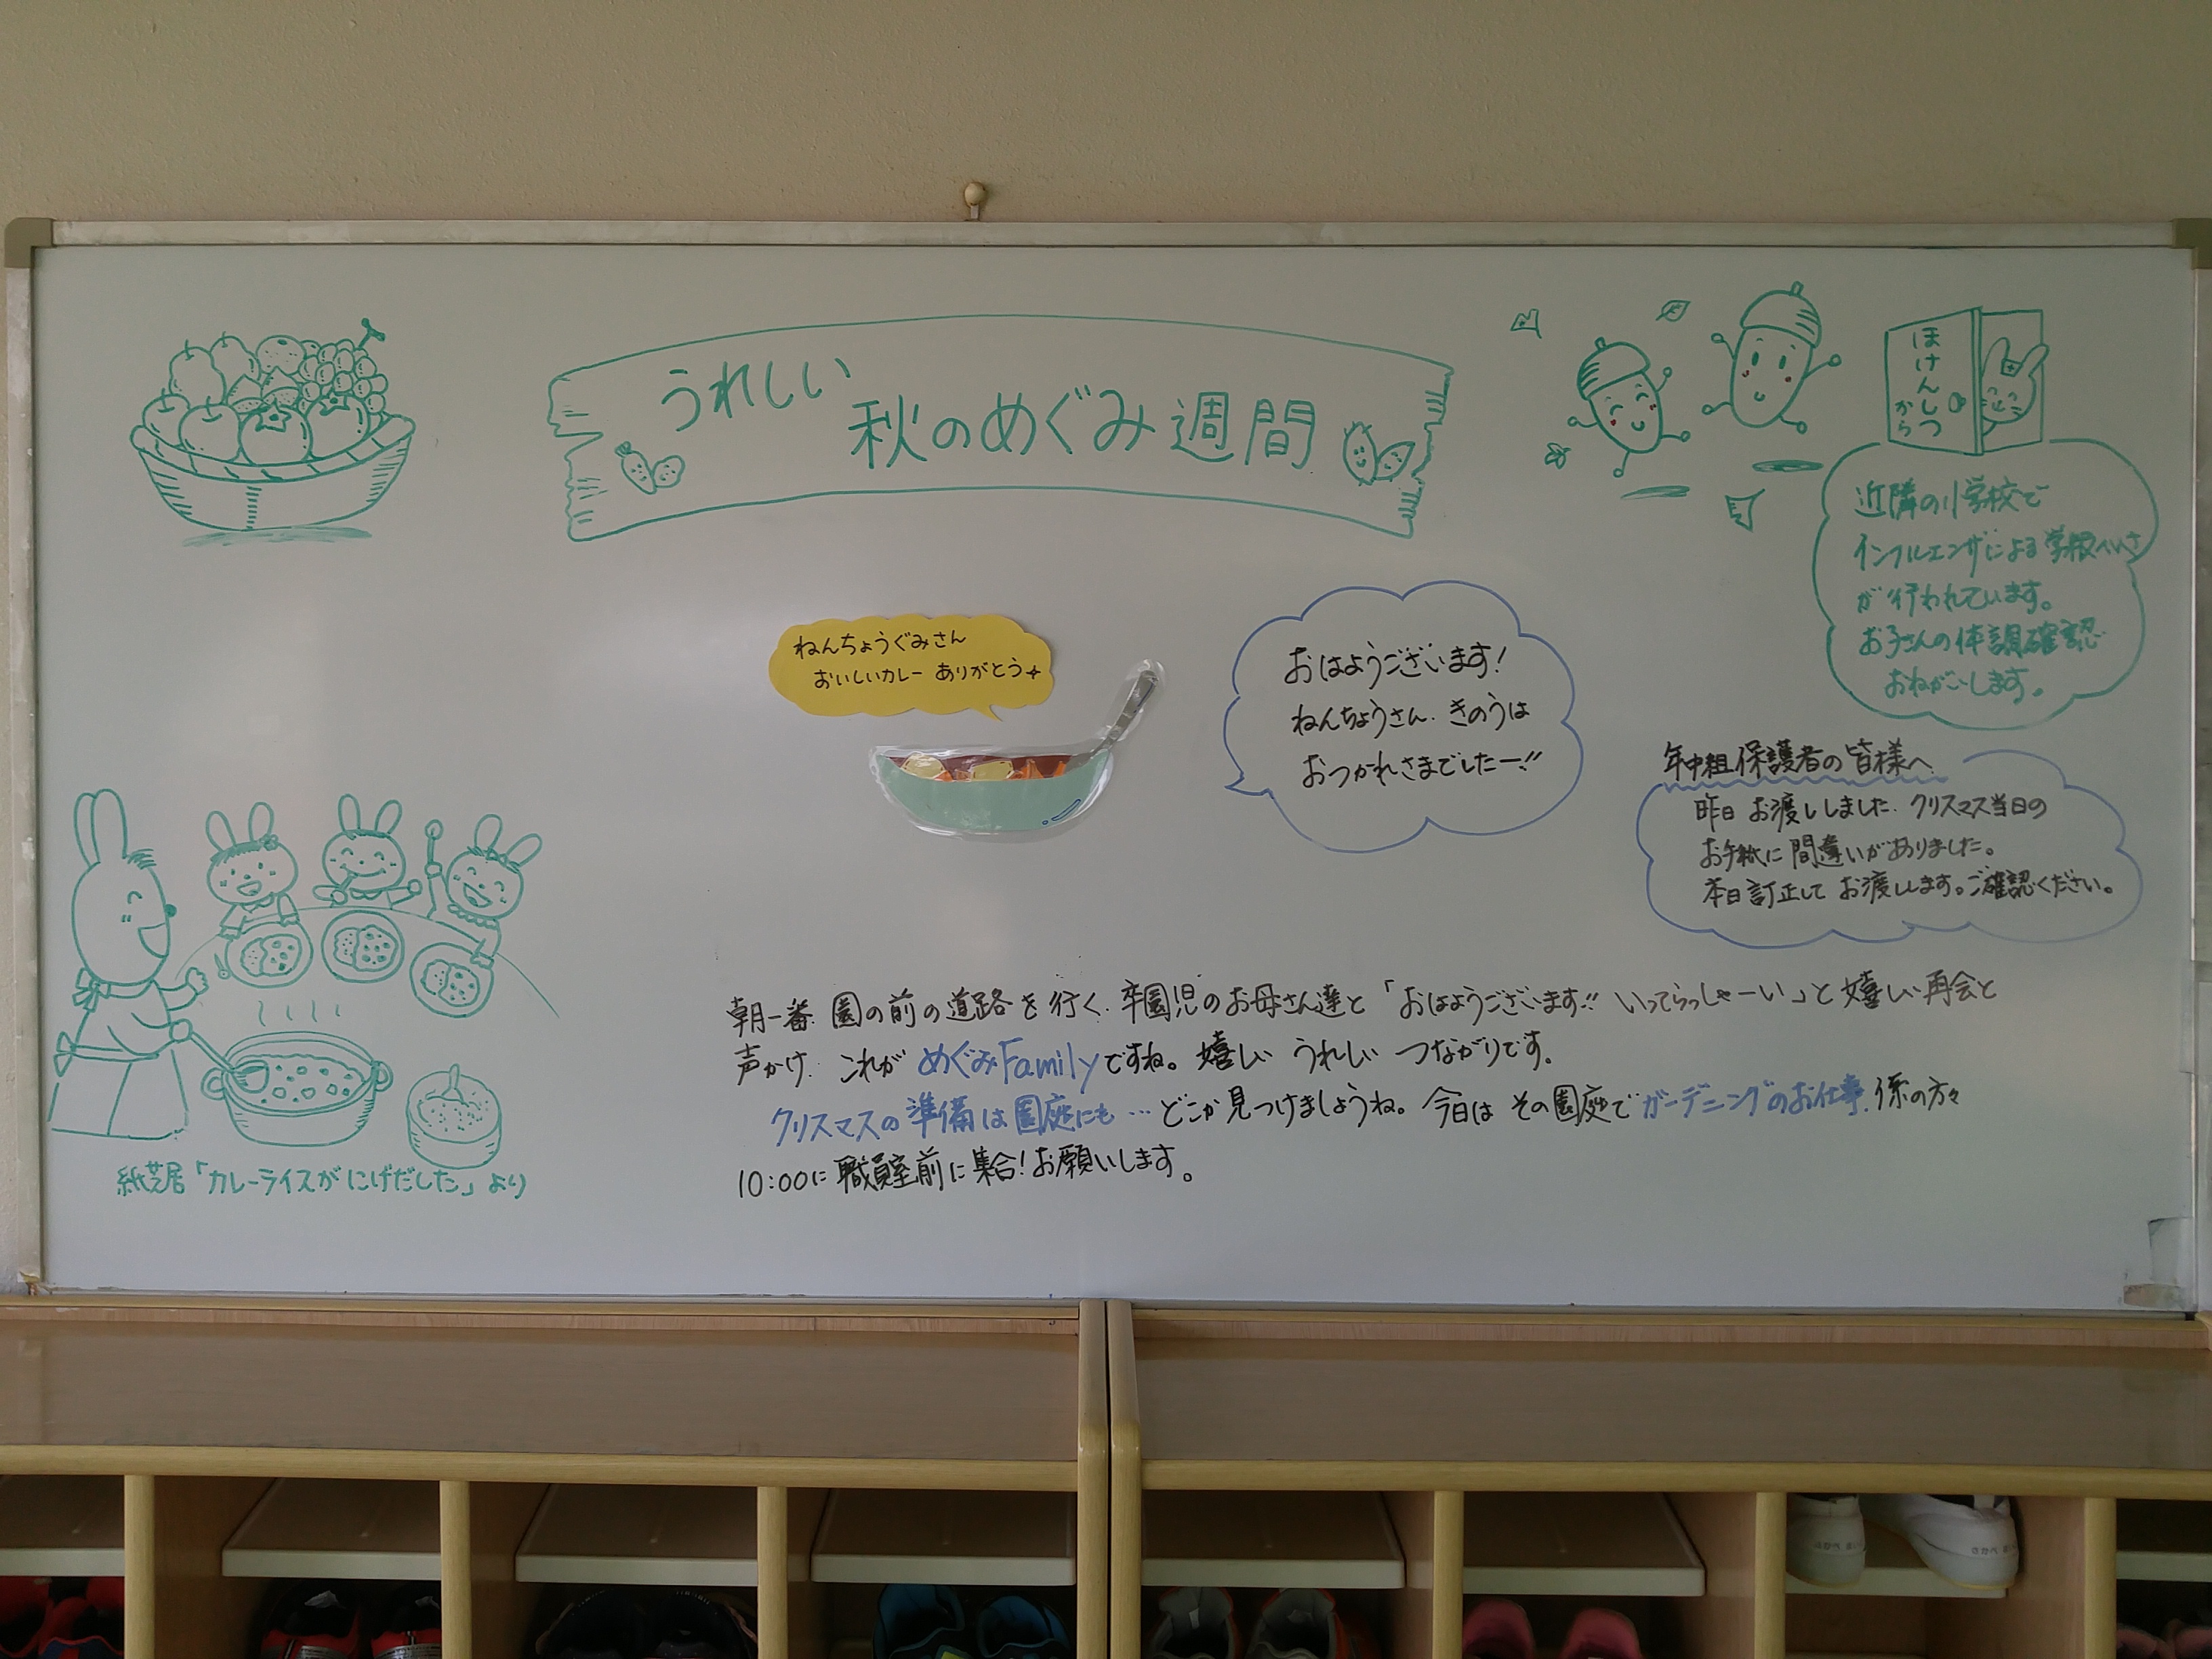 うれしい
秋のめぐみ週間
ほけんしつ
から
近隣の小学校で
インフルエンザによる学級へいさ
が行われています。
お子さんの体調確認
おねがいします。
ねんちょうぐみさん
おいしいカレー ありがとう
おはようございます!
ねんちょうさん、きのうは
おつかれさまでしたー!!
年中組保護者の皆様へ
昨日 お渡ししました、クリスマス当日の
お手紙に間違いがありました。
本日訂正して お渡しします。ご確認ください。
朝一番、園の前の道路を行く、卒園児のお母さん達と「おはようございます!! いってらっしゃーい」と嬉しい再会と
声かけ、これが めぐみFamilyですね。嬉しい うれしい つながりです。
クリスマスの準備は園庭にも…どこか見つけましょうね。今日は その園庭でガーデニングのお仕事、係の方々
10:00に職員室前に集合!お願いします。
紙芝居「カレーライスがにげだした」より